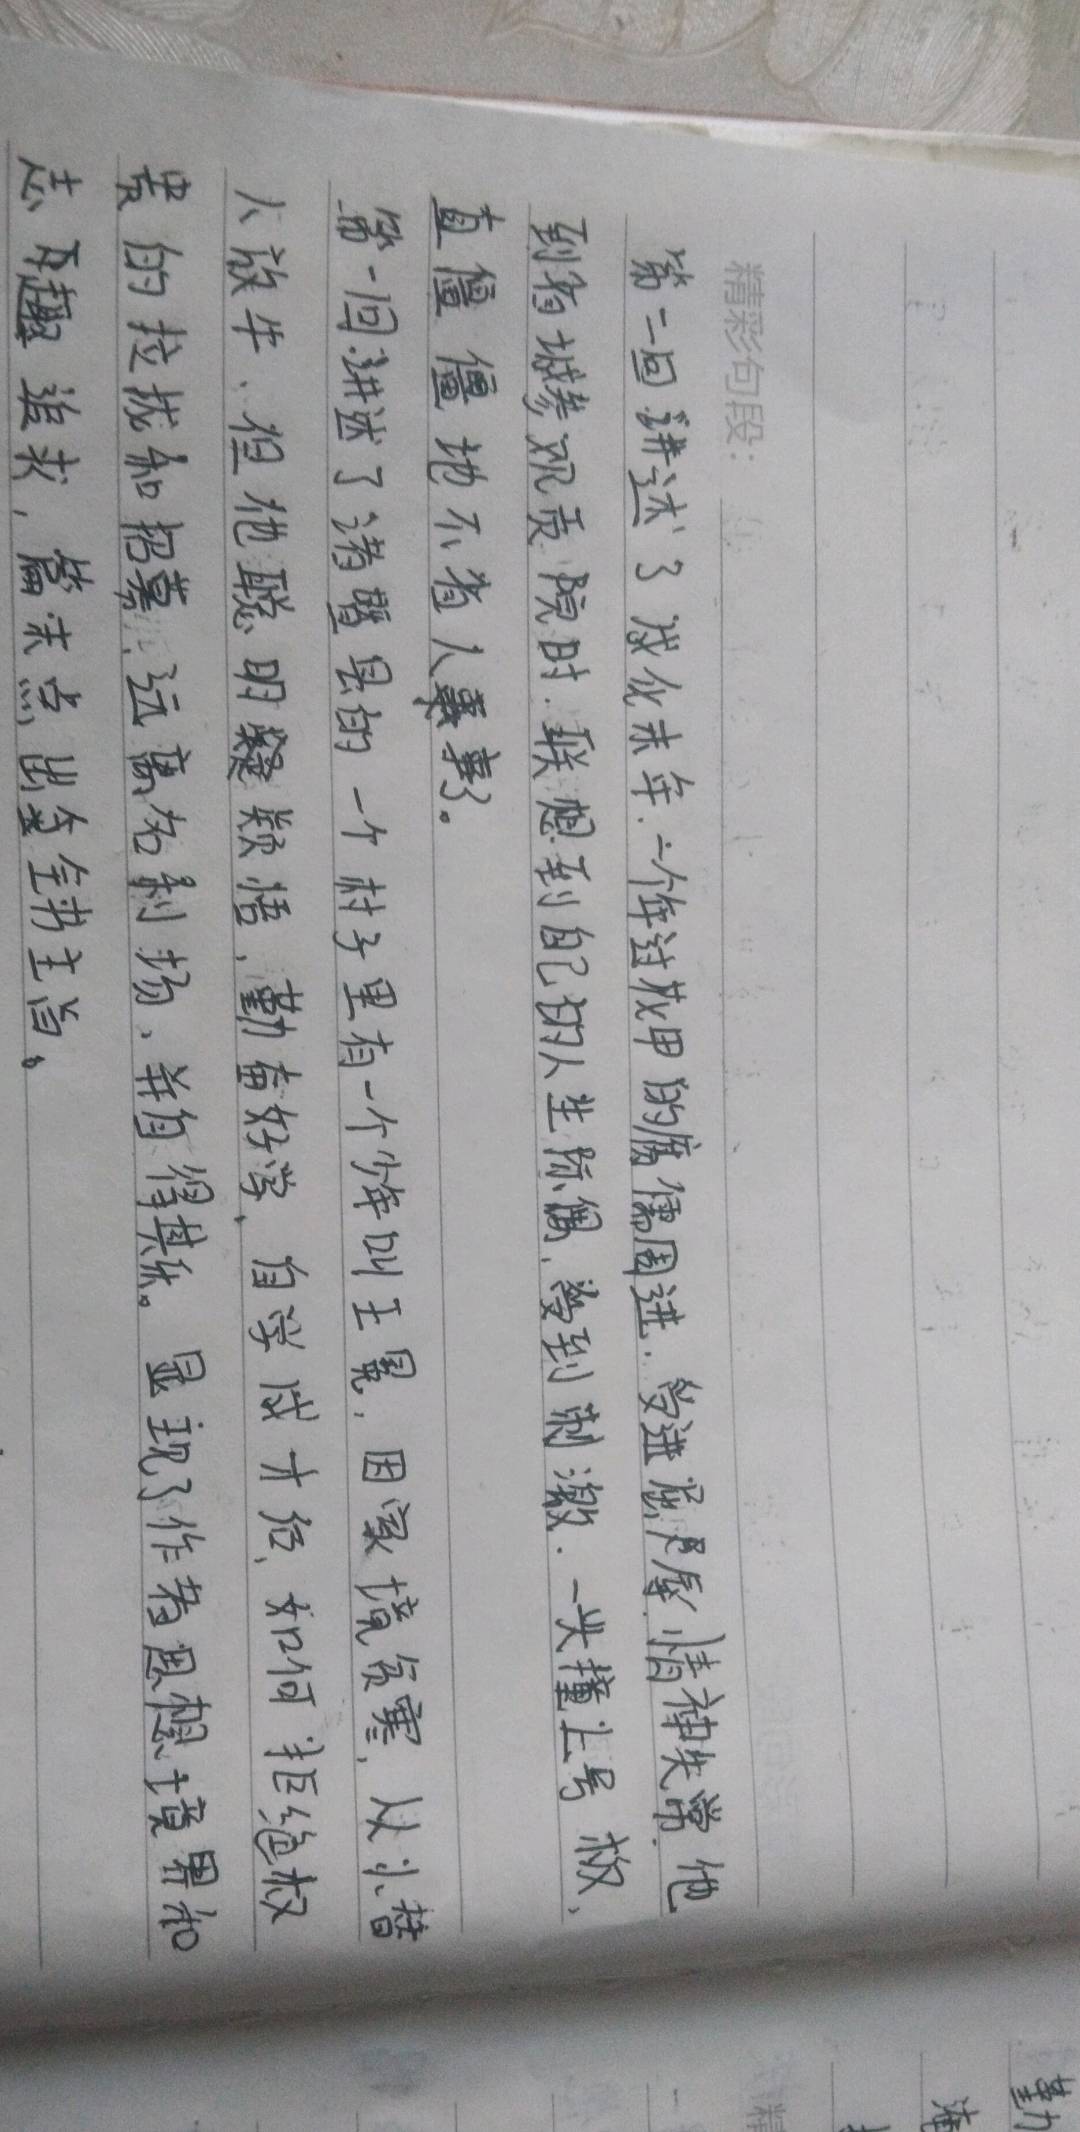 精彩句段:
第二回讲述了成化末年.一个年过花甲的腐儒周进.曾进屡屡辱情神失常.他
到省城参观贡院时.联想到自己的人生际偶,受到刺激.一头撞上号板、
直僵僵地不省人事了。
第一回讲述了诸暨县的一个村子里有一个少年叫王冕.因家境贫寒,从小替
人放牛、但他聪明颖悟,勤奋好学、自学成才后,如何拒绝权
贵的拉拢和招募,远离名利场、并自得其乐。显现了作者思想境界和
志趣追求,篇末点出全书主旨、
勤
淹
精